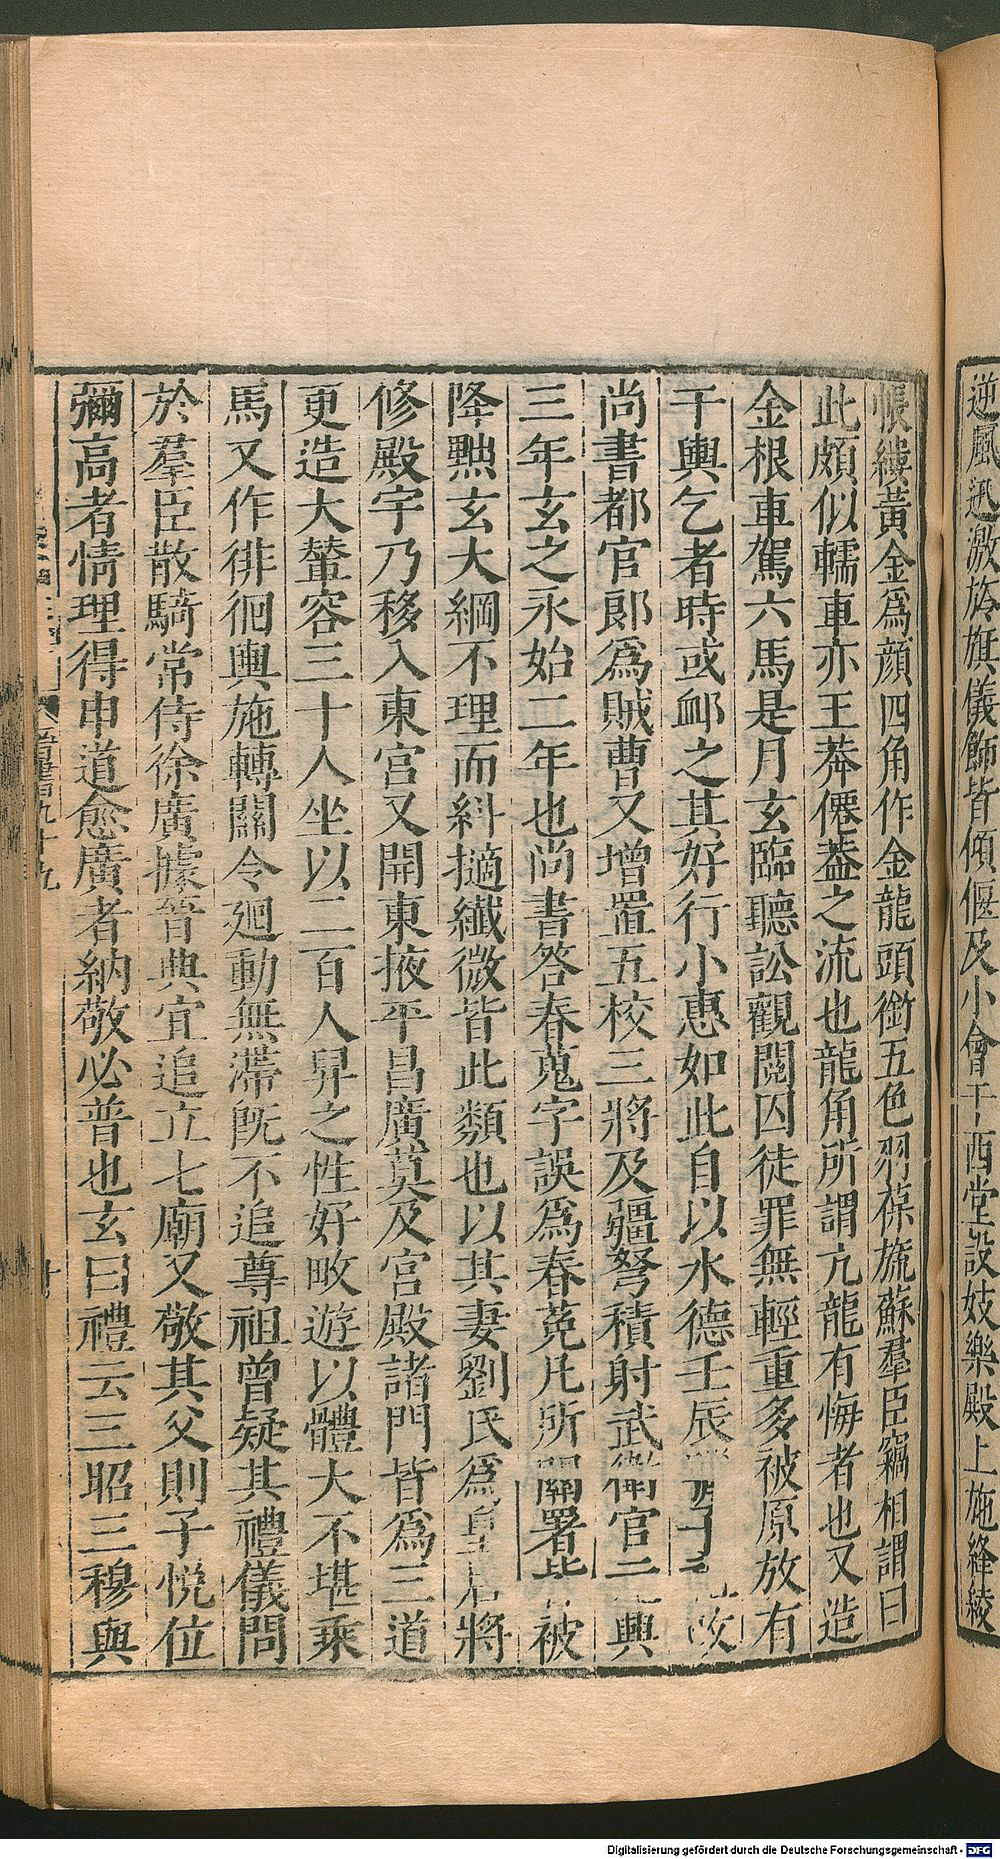 逆風迅激旂旗儀飾皆傾偃及小會于西堂設妓樂殿上施絳綾
帳縷黃金爲顔四角作金龍頭銜五色羽葆旒蘇羣臣竊相謂曰
此頗似轜車亦王莽僊蓋之流也龍角所謂亢龍有悔者也又造
金根車駕六馬是月玄臨聽訟觀閱囚徒罪無輕重多被原放有
干輿乞者時或卹之其好行小惠如此自以水德壬辰改
尚書都官郎爲賊曹又增置五校三將及疆弩積射武衛官元興
三年玄之永始二年也尚書答春蒐字誤爲春菟凡所關署皆被
降黜玄大綱不理而糾擿纖微皆此類也以其妻劉氏爲皇后將
修殿宇乃移入東宮又開東掖平昌廣莫及宮殿諸門皆爲三道
更造大輦容三十人坐以二百人舁之性好畋遊以體大不堪乘
馬又作徘徊輿施轉關令廻動無滯旣不追尊祖曾疑其禮儀問
於羣臣散騎常侍徐廣據晉典宜追立七廟又敬其父則子悅位
彌高者情理得申道愈廣者納敬必普也玄曰禮云三昭三穆與
晉書九十九
Digitalisierung gefördert durch die Deutsche Forschungsgemeinschaft - DFG